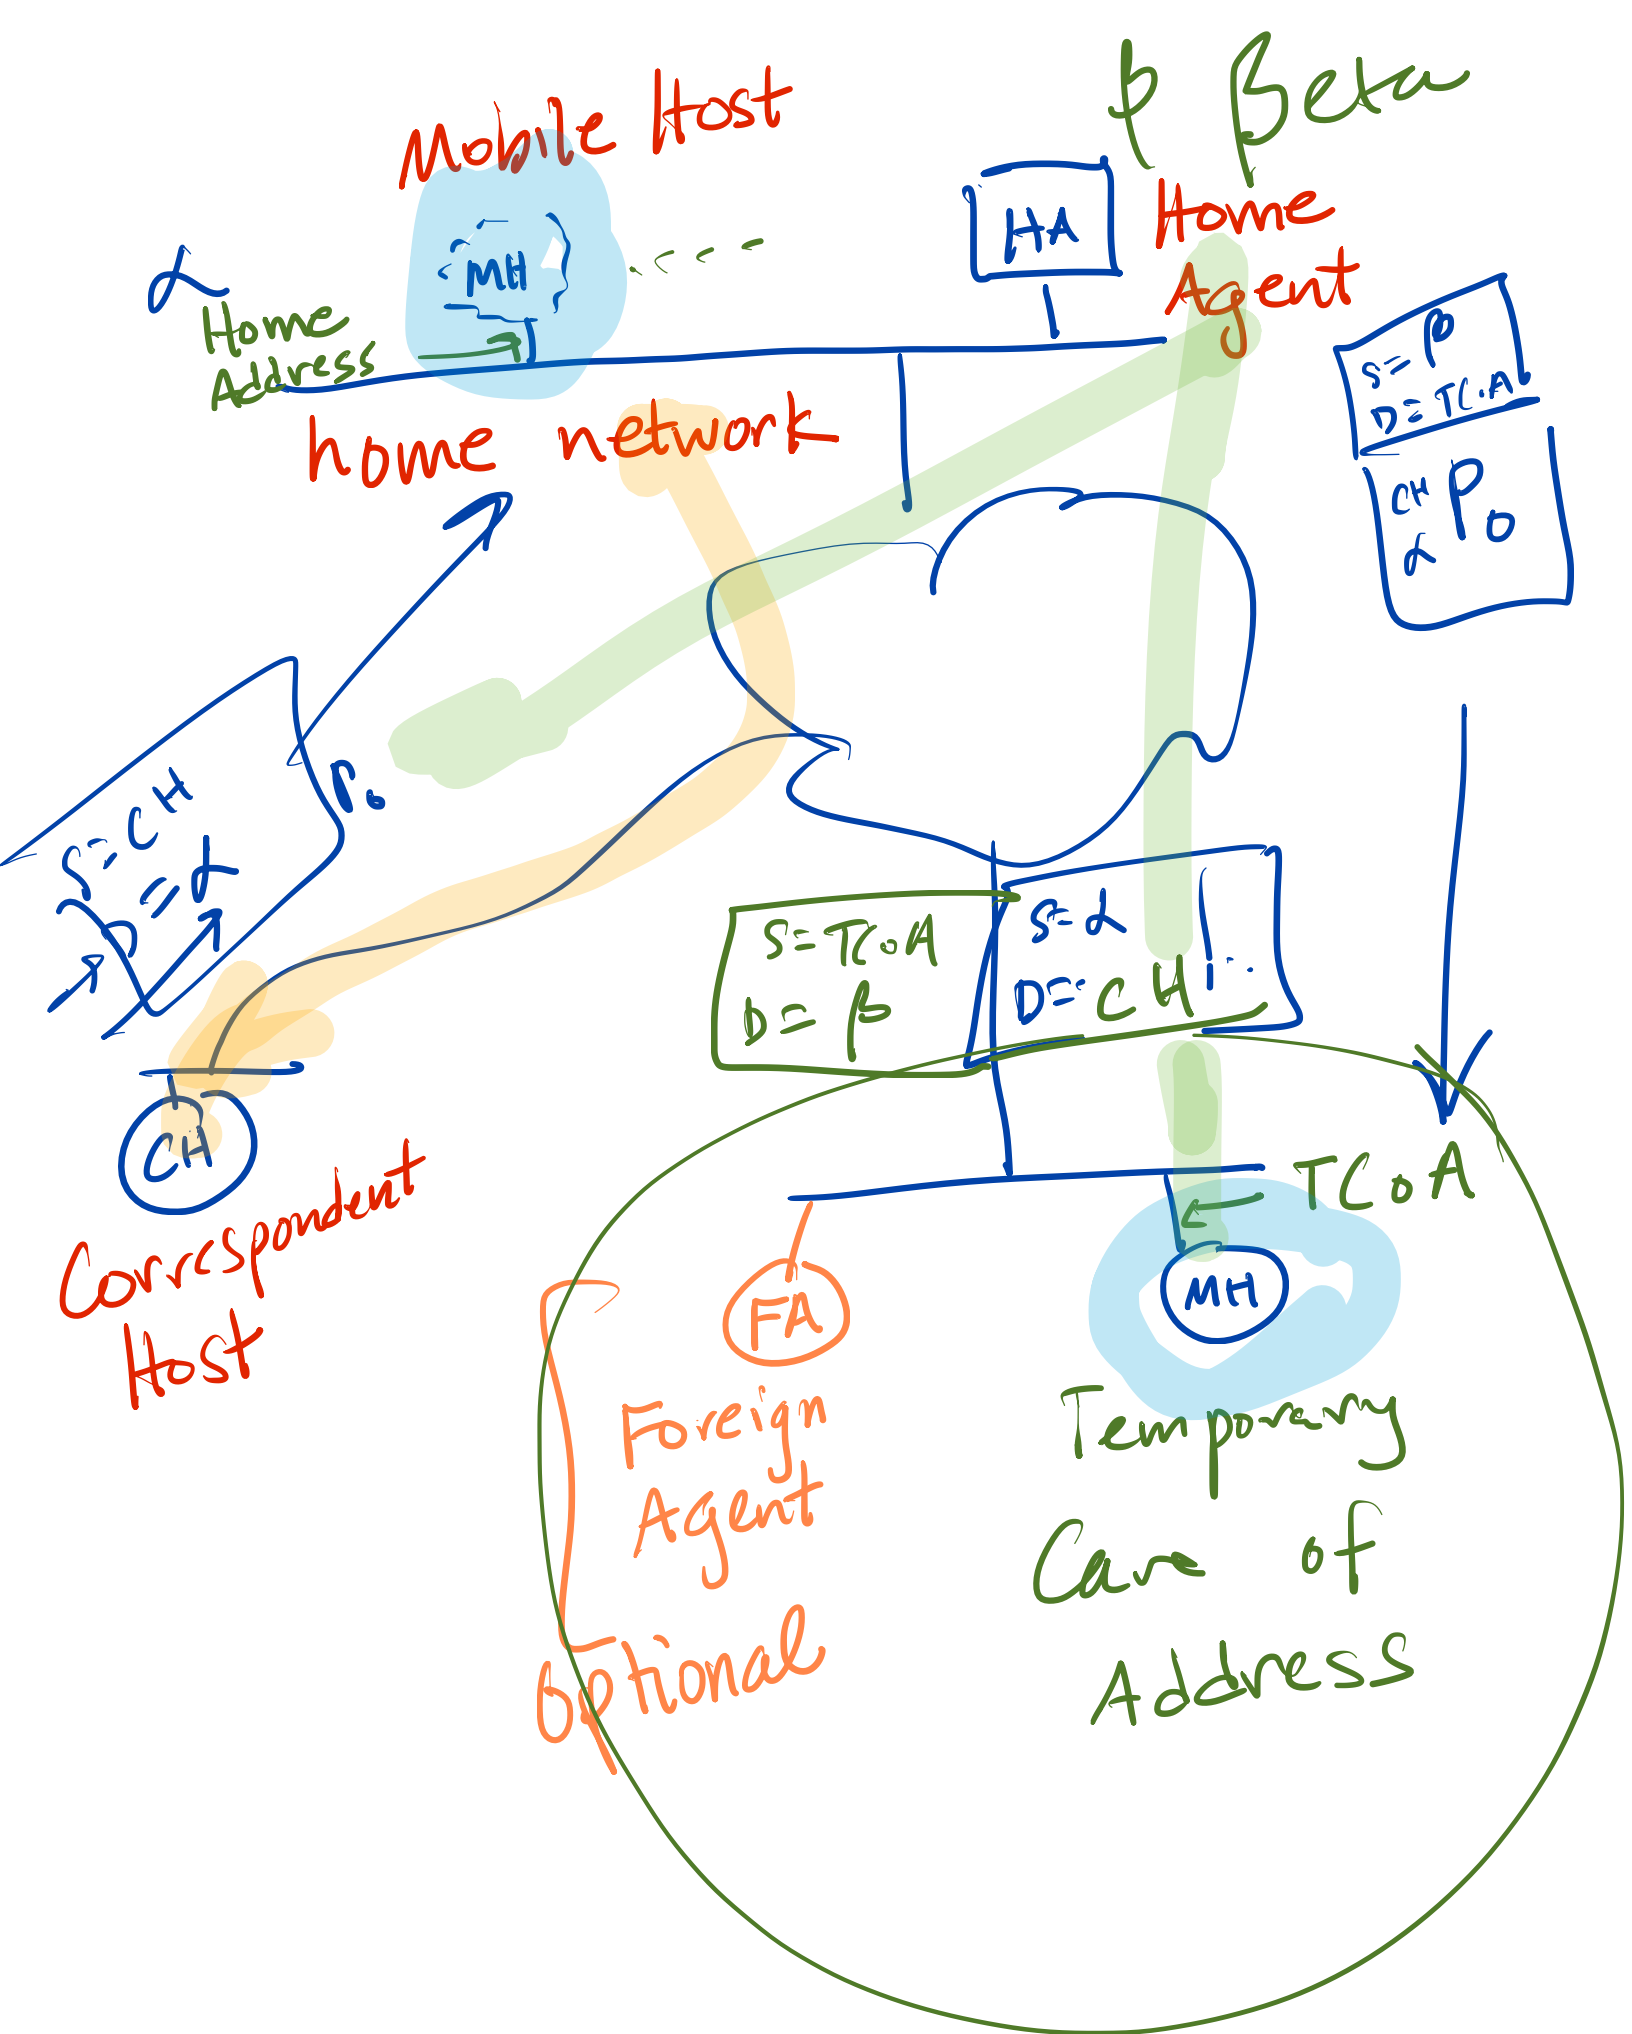 β βeta
Mobile Host
HA
Home
Agent
MH
α
Home
Address
home network
S=β
D=TCoA
CH
α
P0
S=CH
D=α
P0
S=TCoA
D=β
S=α
D=CH
CH
Correspondent
Host
TCoA
MH
FA
Foreign
Agent
Optional
Temporary
Care of
Address